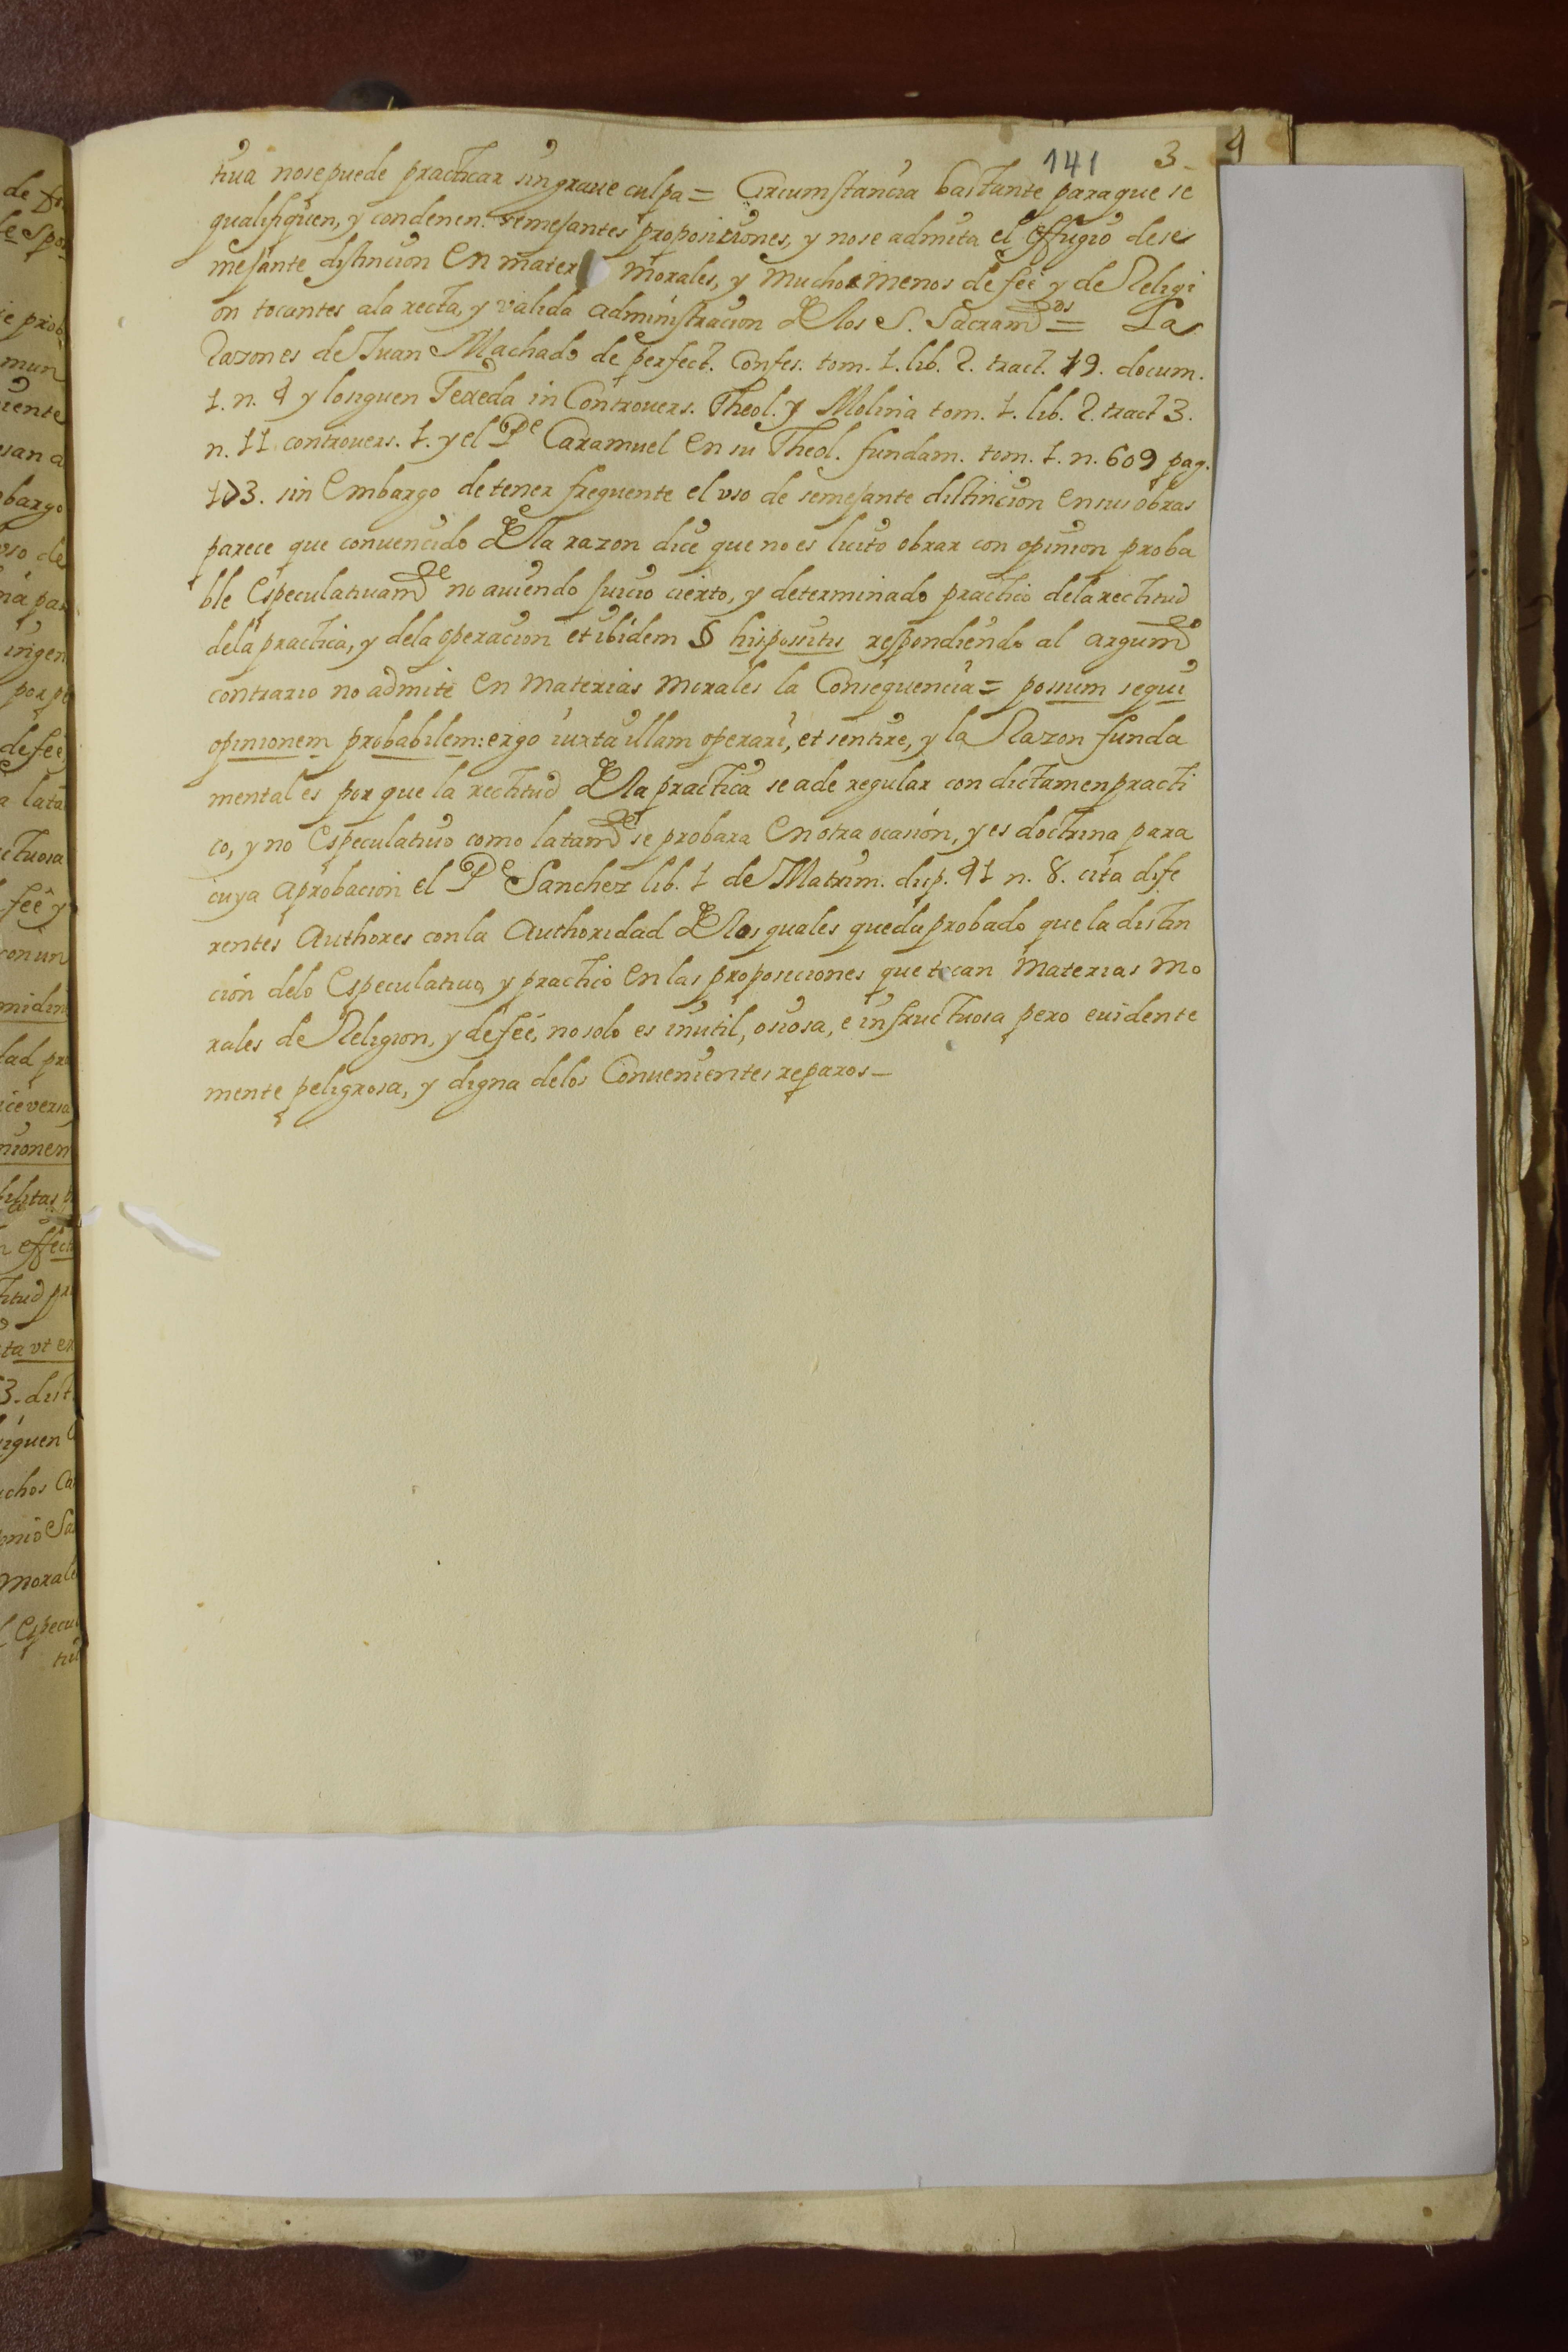 141 3_ 4
tiua nosepuede practicar sin graue culpa = Circumstancia bastante paraque se
qualifiquen, y condenen. semejantes proposiciones, y nose admita el effugio dese
mejante distincion En mater morales, y mucho menos de feé y de Religi
on tocantes ala recta, y valida administracion de los S. Sacramdos = La
Razon es de Juan Machado de perfect. Confes. tom. 1. lib. 2. tract. 19. docum.
1. n. 4 y losiguen Texeda in Controuers. Theol. y Molina tom. 1. lib. 2. tract 3.
n. 11 controuers. 1. y el Pe Caramuel En su Theol. fundam. tom. 1. n. 609 pag.
173. sin Embargo detener frequente el vso de semejante distincion Ensus obras
parece que conuencido de la razon dice que no es licito obrar con opinion proba
ble Especulatiuamde no auiendo juicio cierto, y determinado practico dela rectitud
dela practica, y dela operacion et ibidem § hispositis respondiendo al argumdo
contrario no admite En materias morales la Consequencia = possum sequi
opinionem probabilem: ergo iuxta illam operari, et sentire, y la Razon funda
mental es por que la rectitud de la practica se ade regular con dictamen practi
co, y no Especulatiuo como latamde se probara En otra ocasion, y es doctrina para
cuya aprobacion el Pe Sanchez lib. 1 de Matrim. disp. 41 n. 8. cita dife
rentes Authores conla Authoridad de los quales queda probado que la distin
cion delo Especulatiuo, y practico En las proposiciones que tocan Materias mo
rales de Religion, y de feé, no solo es inutil, osiosa, e infructuosa pero euidente
mente peligrosa, y digna delos Conuenientes reparos_